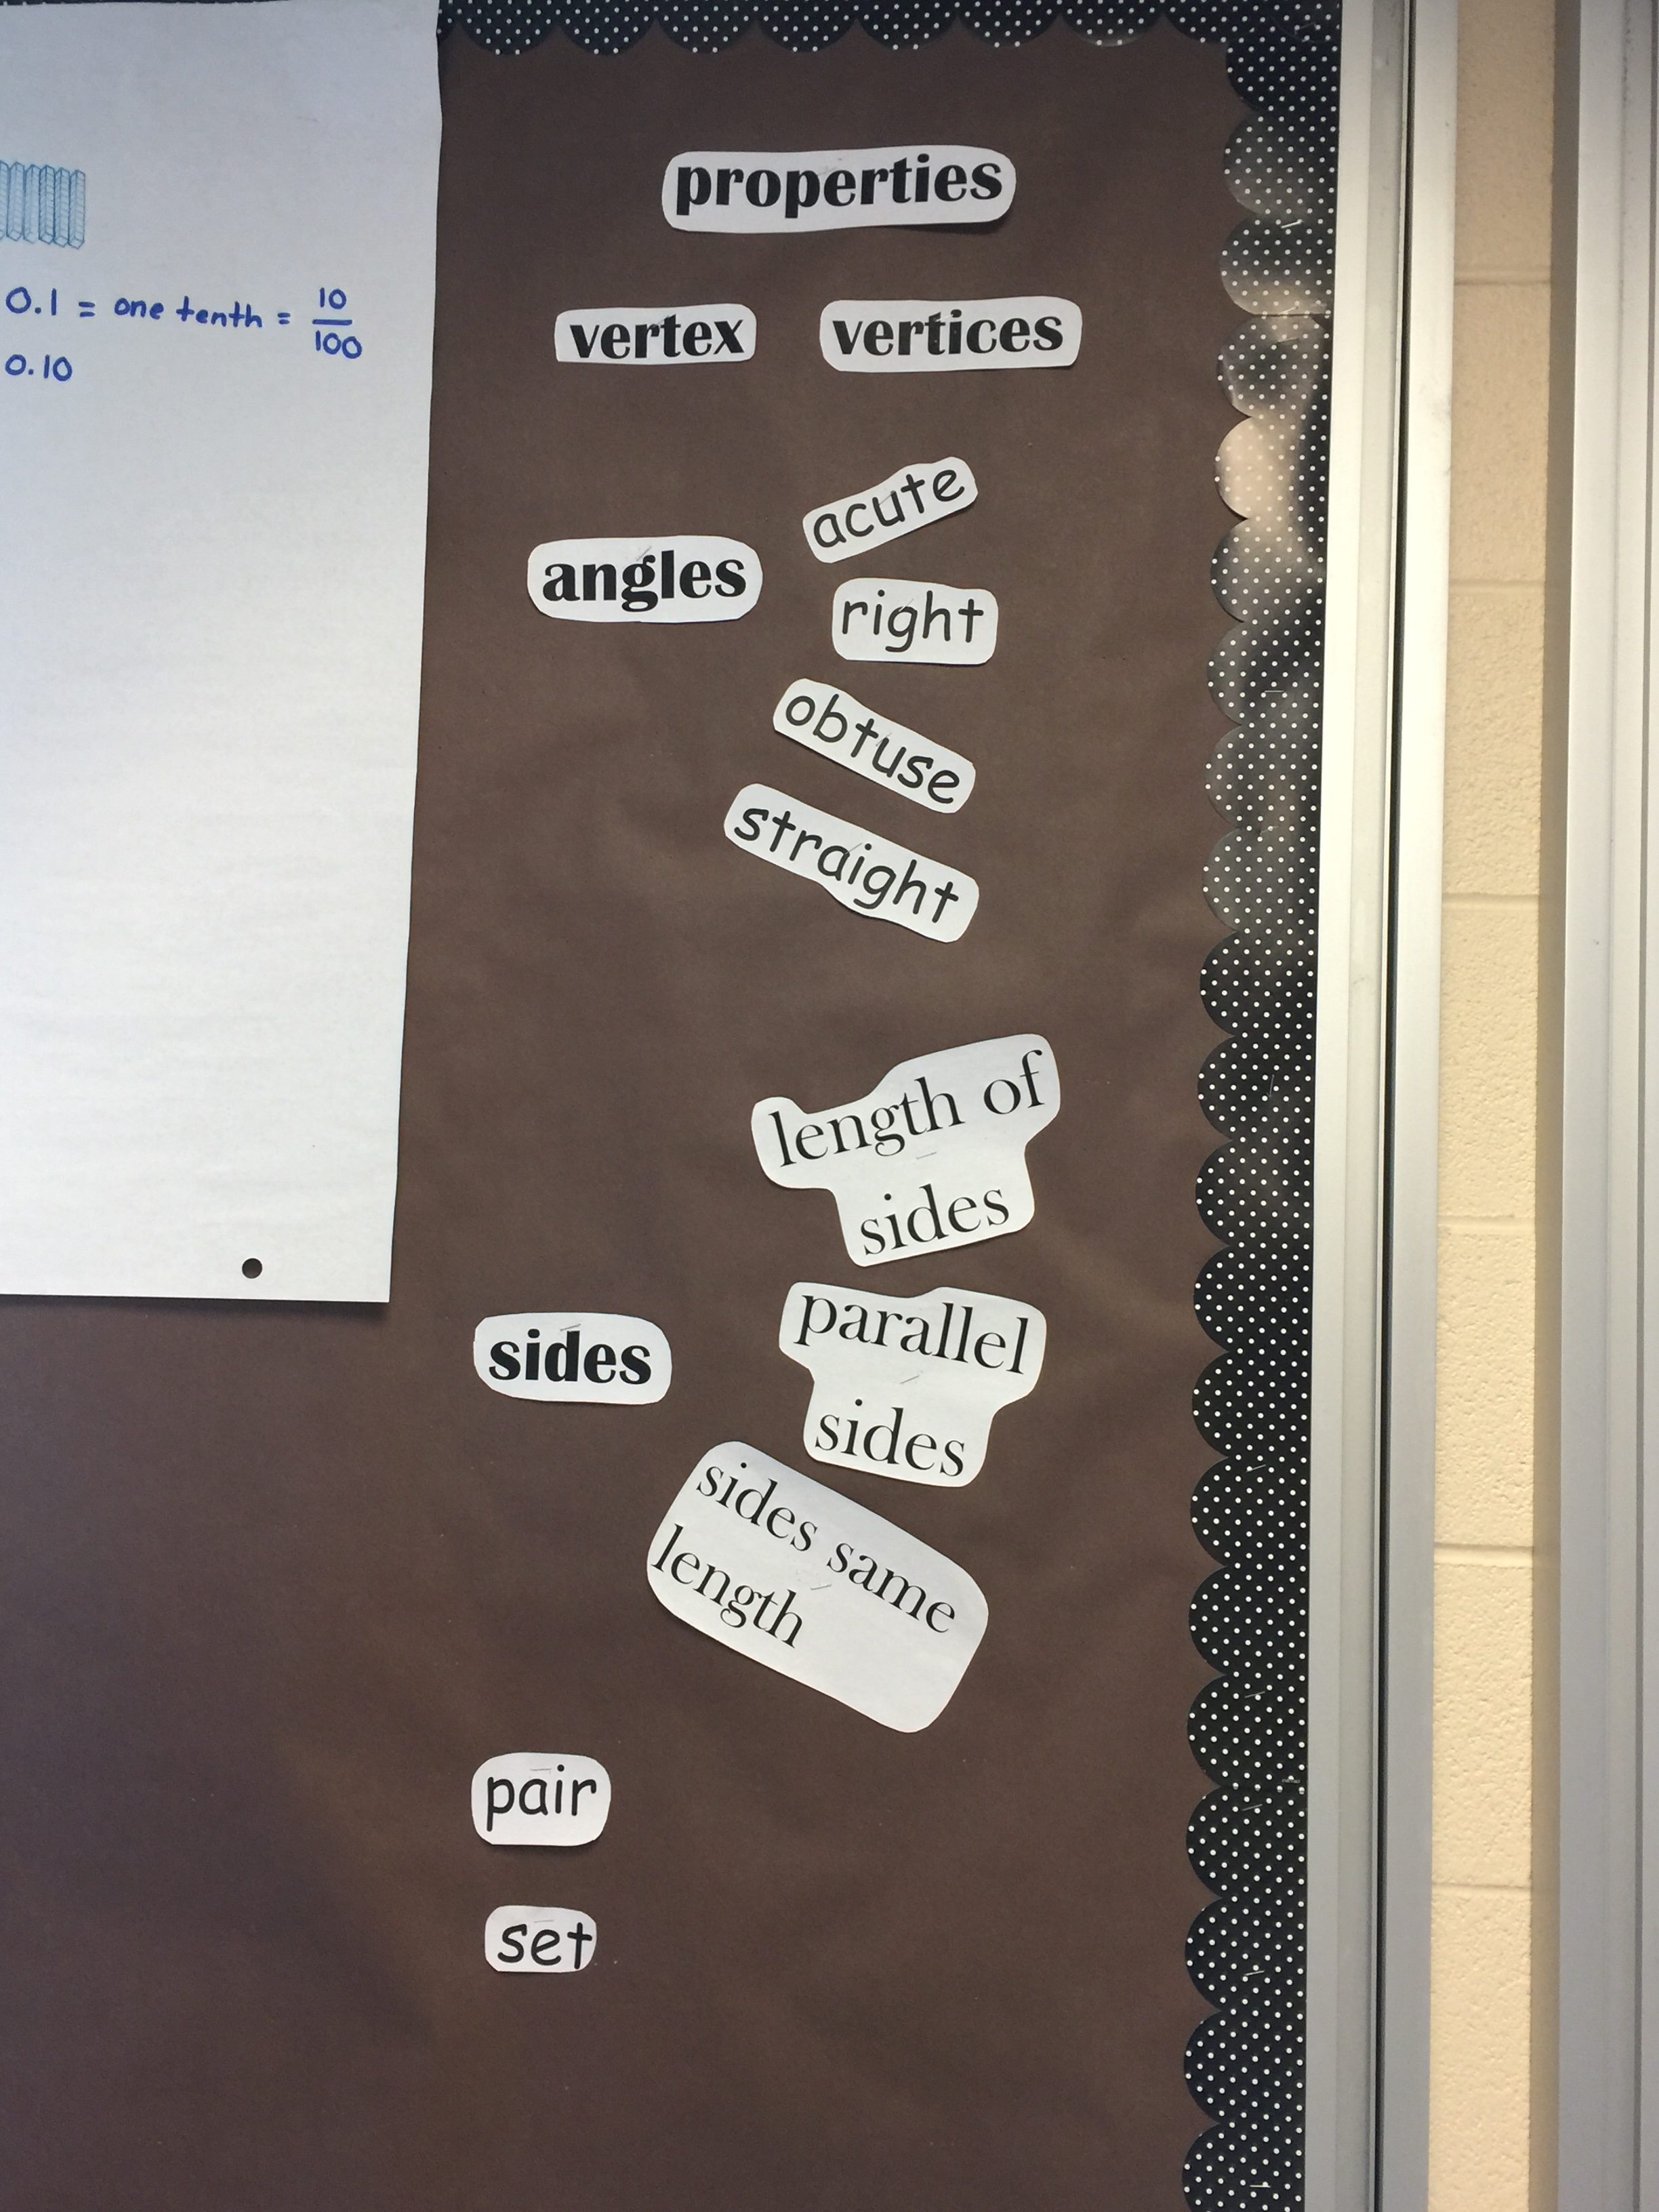 0.1 = one tenth = 10/100
0.10
properties
vertex vertices
angles
acute
right
obtuse
straight
length of
sides
sides
parallel
sides
sides same
length
pair
set